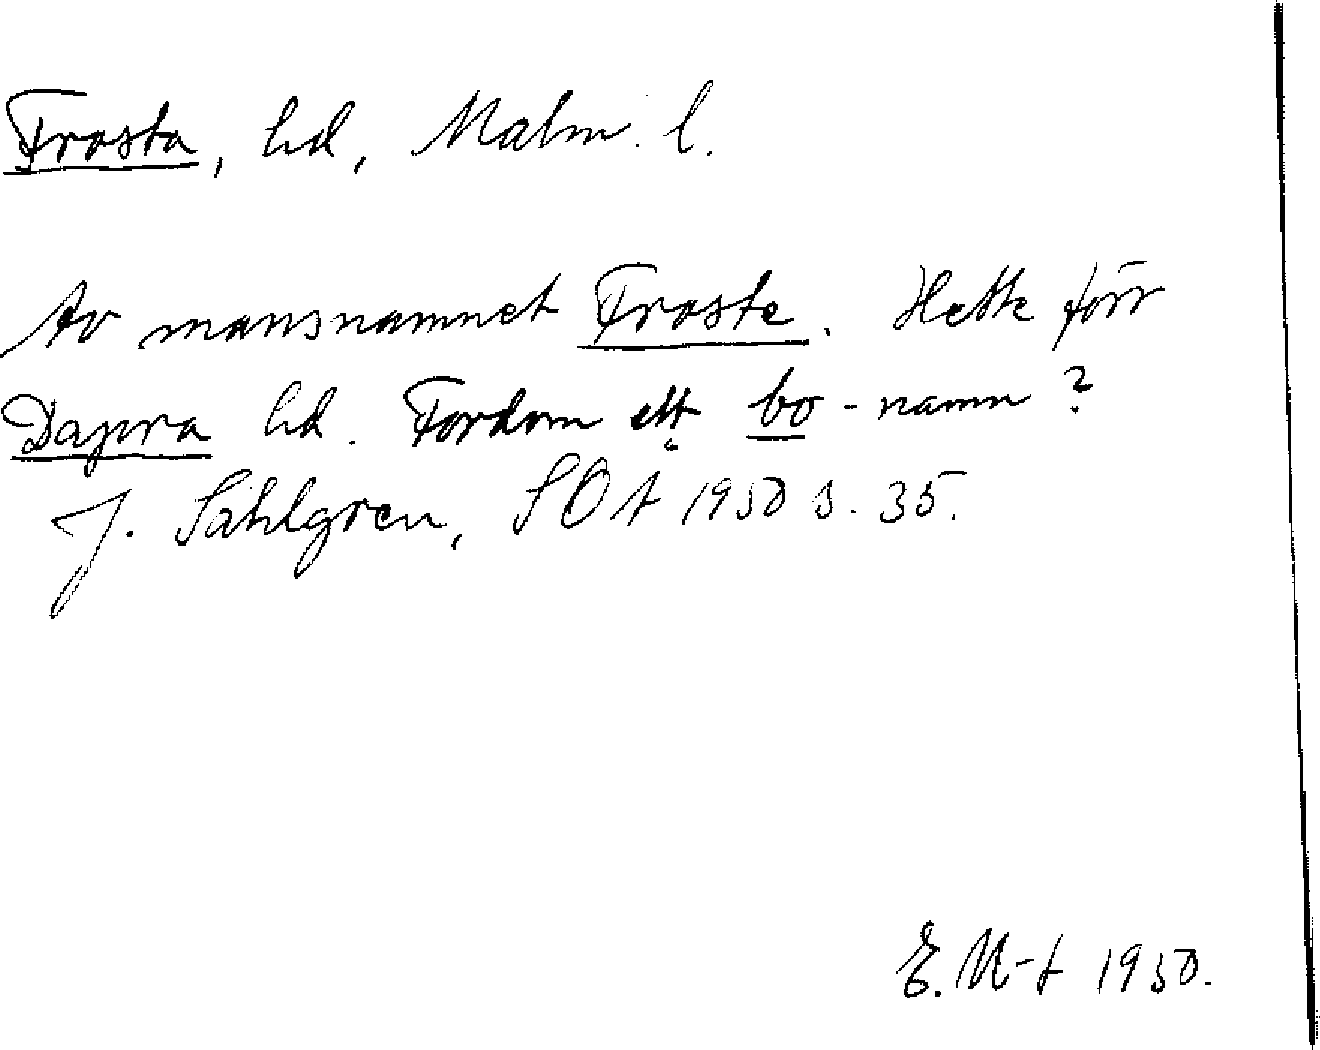 Frosta, hd, Malm. l.
Av mansnamnet Froste. Hette förr
Dapra hd. Fordom ett bo-namn?
J. Sahlgren, SOÅ 1950 s. 35.
E. M-t 1950.